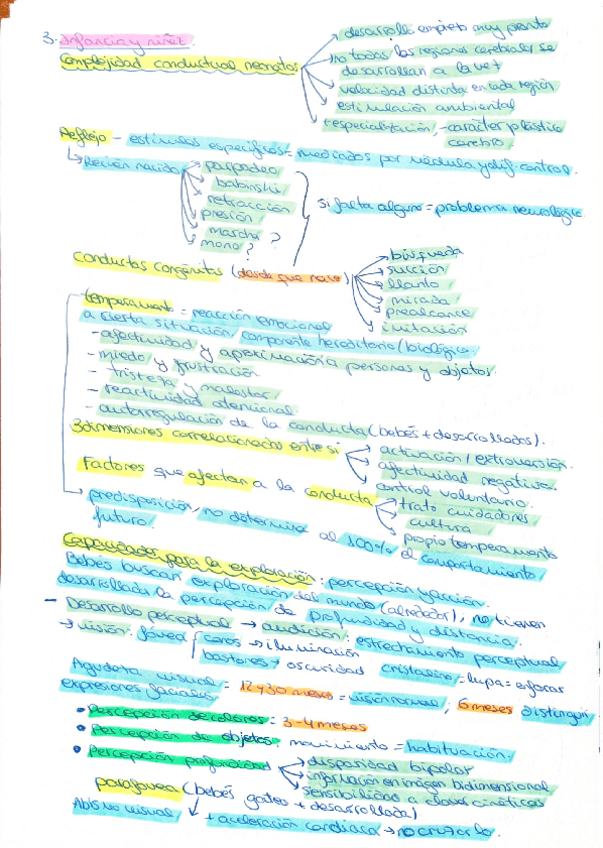 3. Infancia y niñez.
Complejidad conductual neonatos
desarrollo empieza muy pronto
no todas las regiones cerebrales se
desarrollan a la vez
velocidad distinta en cada región
estimulación ambiental
+ especialización, - carácter plástico
cerebro.
Reflejo - estímulos específicos = mediados por médula y dif. control.
Recién nacido
parpadeo
babinski
retracción
presión
marcha ?
mono ?
si falta alguno = problema neurológico
Conductas congénitas (desde que nace)
búsqueda
succión
llanto
mirada
prealcance
imitación
temperamento = reacción emocional
a cierta situación, componente hereditario (biológico.
- afectividad y aproximación a personas y objetos.
- miedo y frustración
- tristeza y malestar.
- reactividad atencional.
- autorregulación de la conducta (bebés + desarrollados).
3 dimensiones correlacionadas entre sí
activación / extroversión.
afectividad negativa.
control voluntario.
Factores que afectan a la conducta
trato cuidadores
cultura
propio temperamento
predisposición, no determina al 100% el comportamiento
futuro.
Capacidades para la exploración: percepción y acción.
Bebés buscan exploración del mundo (alrededor), no tienen
desarrollada la percepción de profundidad y distancia.
- Desarrollo perceptual → audición: estrechamiento perceptual
→ visión: fóvea
conos → iluminación
bastones + oscuridad
cristalino = lupa = enfocar
Agudeza visual = 12 y 30 meses = visión normal; 6 meses distinguir
expresiones faciales.
• Percepción de colores: 3-4 meses
• Percepción de objetos: movimiento = habituación.
• Percepción profundidad
disparidad bipolar
información en imagen bidimensional
sensibilidad a claves cinéticas
parafovea (bebés gateo + desarrollada)
Abismo visual
+ aceleración cardiaca → no cruzarlo.